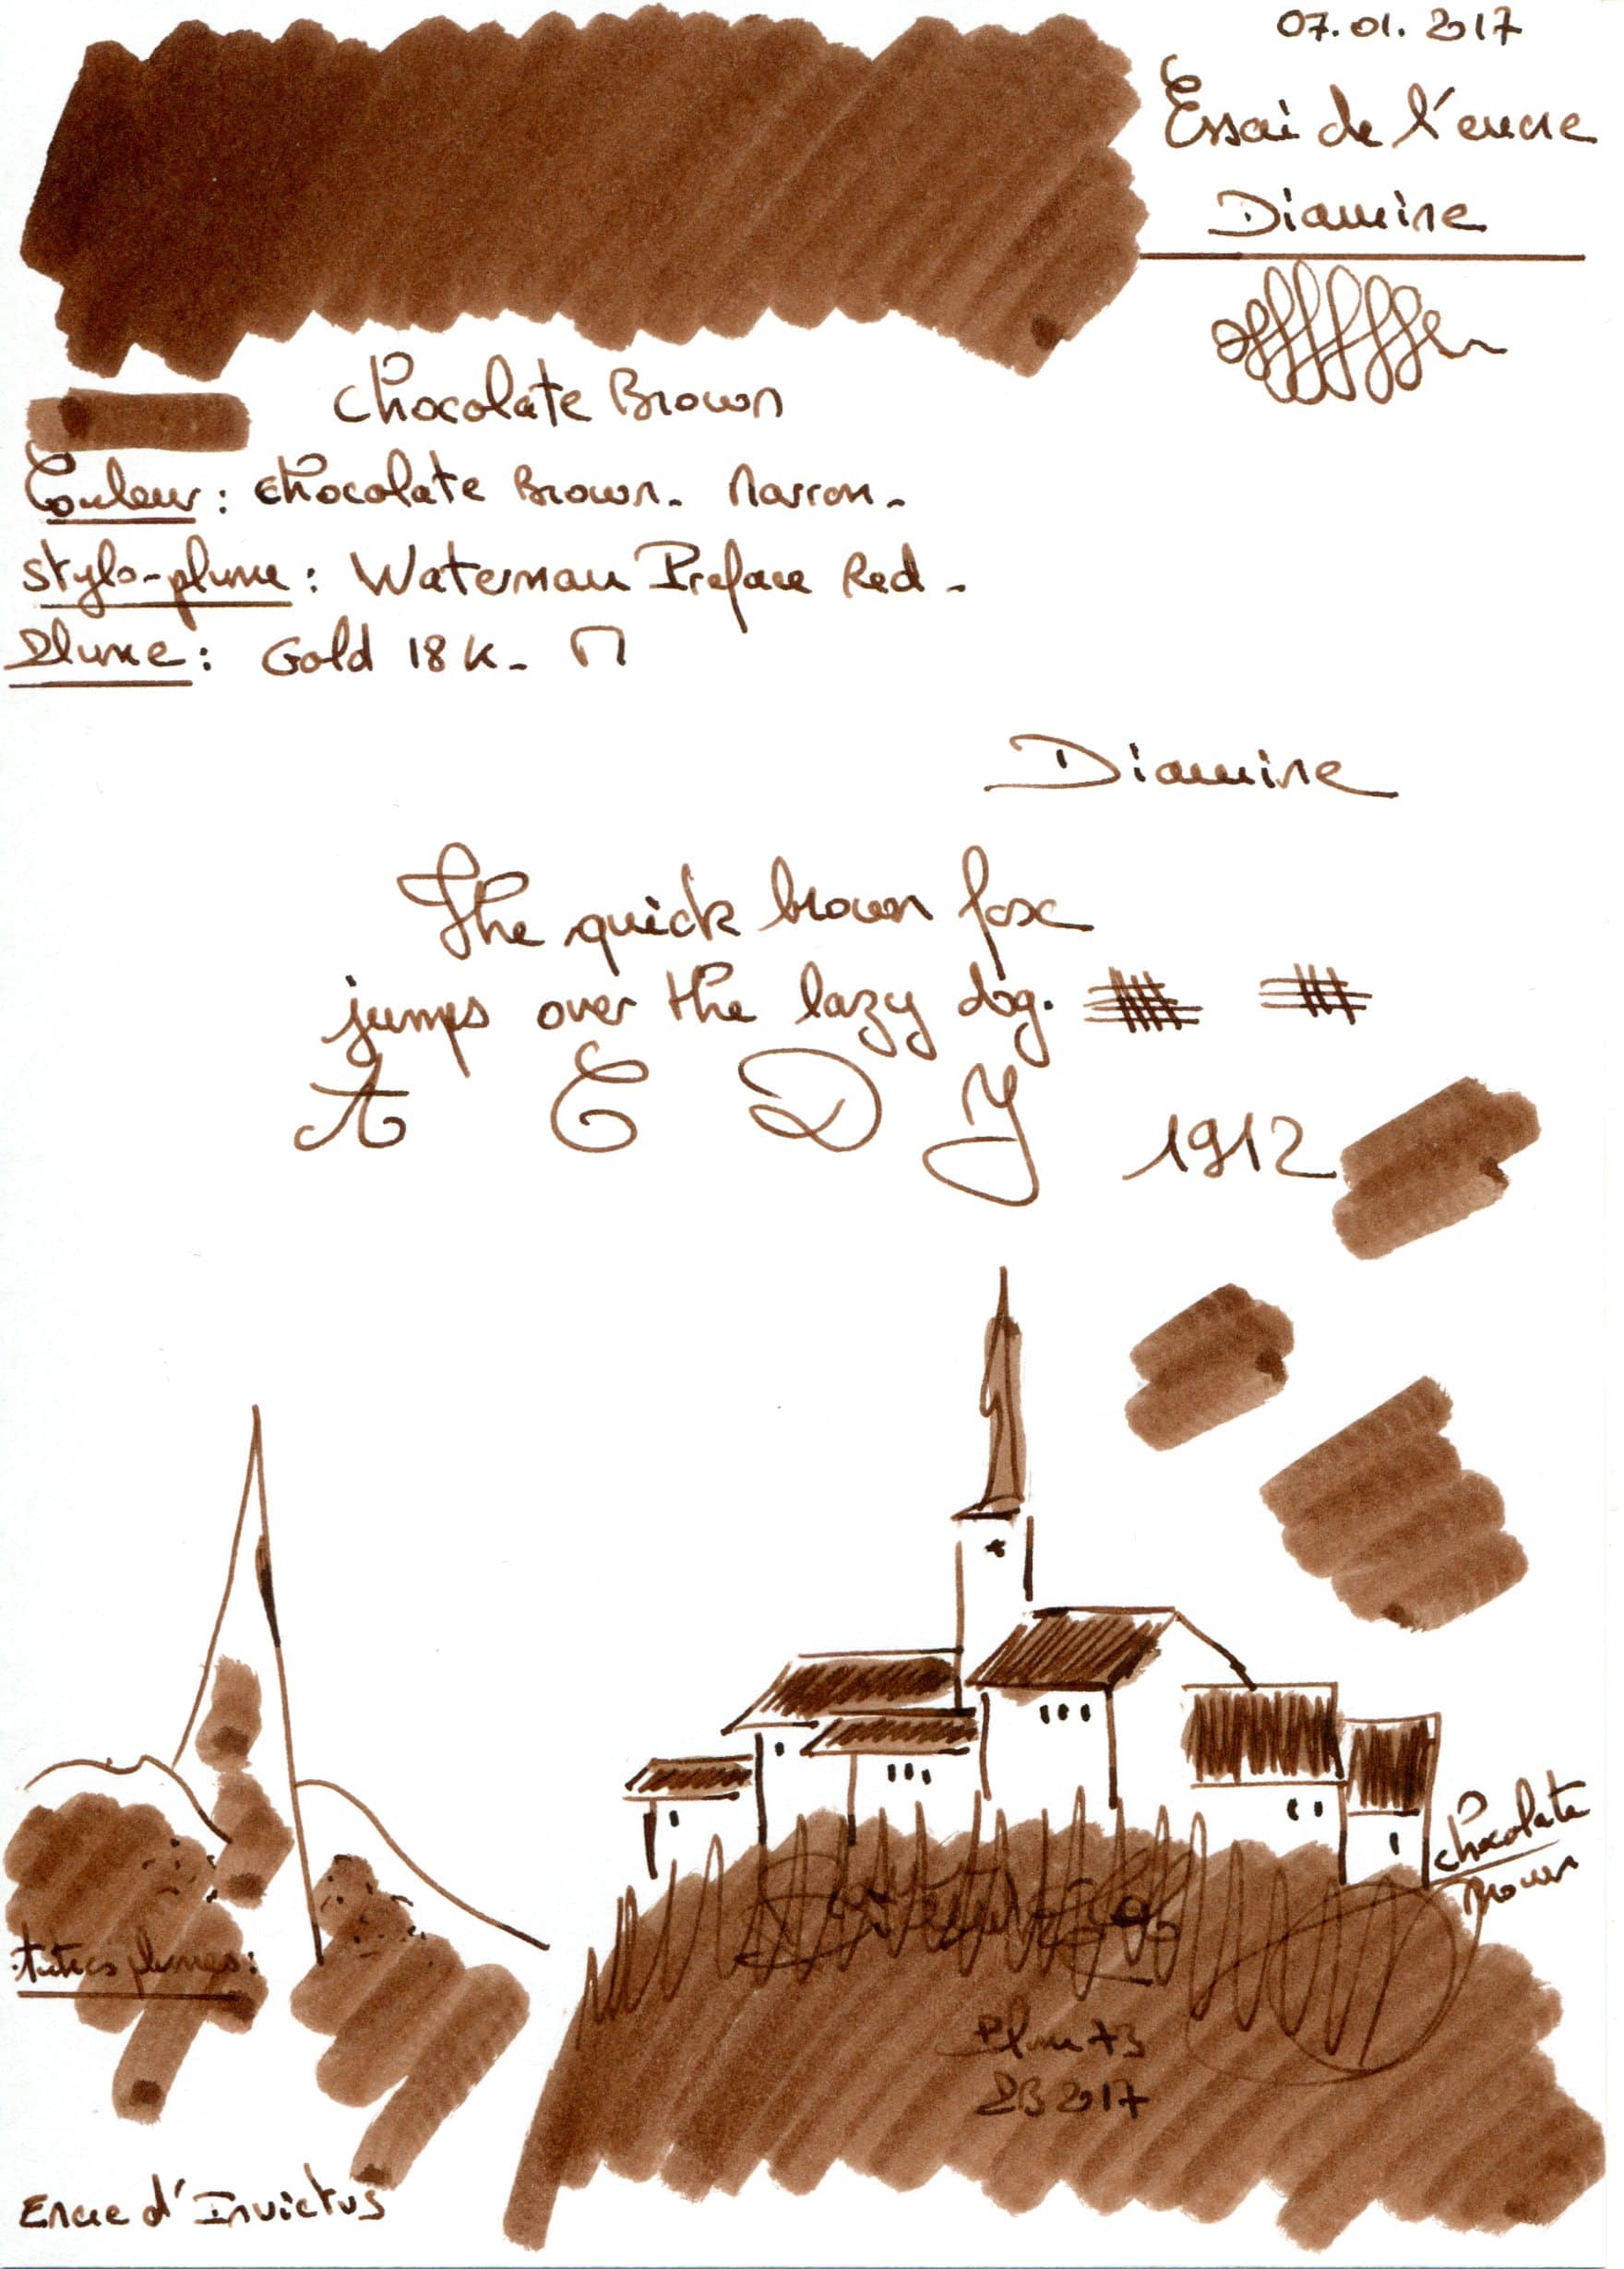 07.01.2017
Essai de l'encre
Diamine
Chocolate Brown
Couleur : Chocolate Brown - Marron -
Stylo-plume : Waterman Preface Red -
Plume : Gold 18 K - M
Diamine
The quick brown fox
jumps over the lazy dog.
A E D Y 1912
Chocolate
Brown
Autres plumes :
Plume 73
PB 2017
Encre d'Invictus